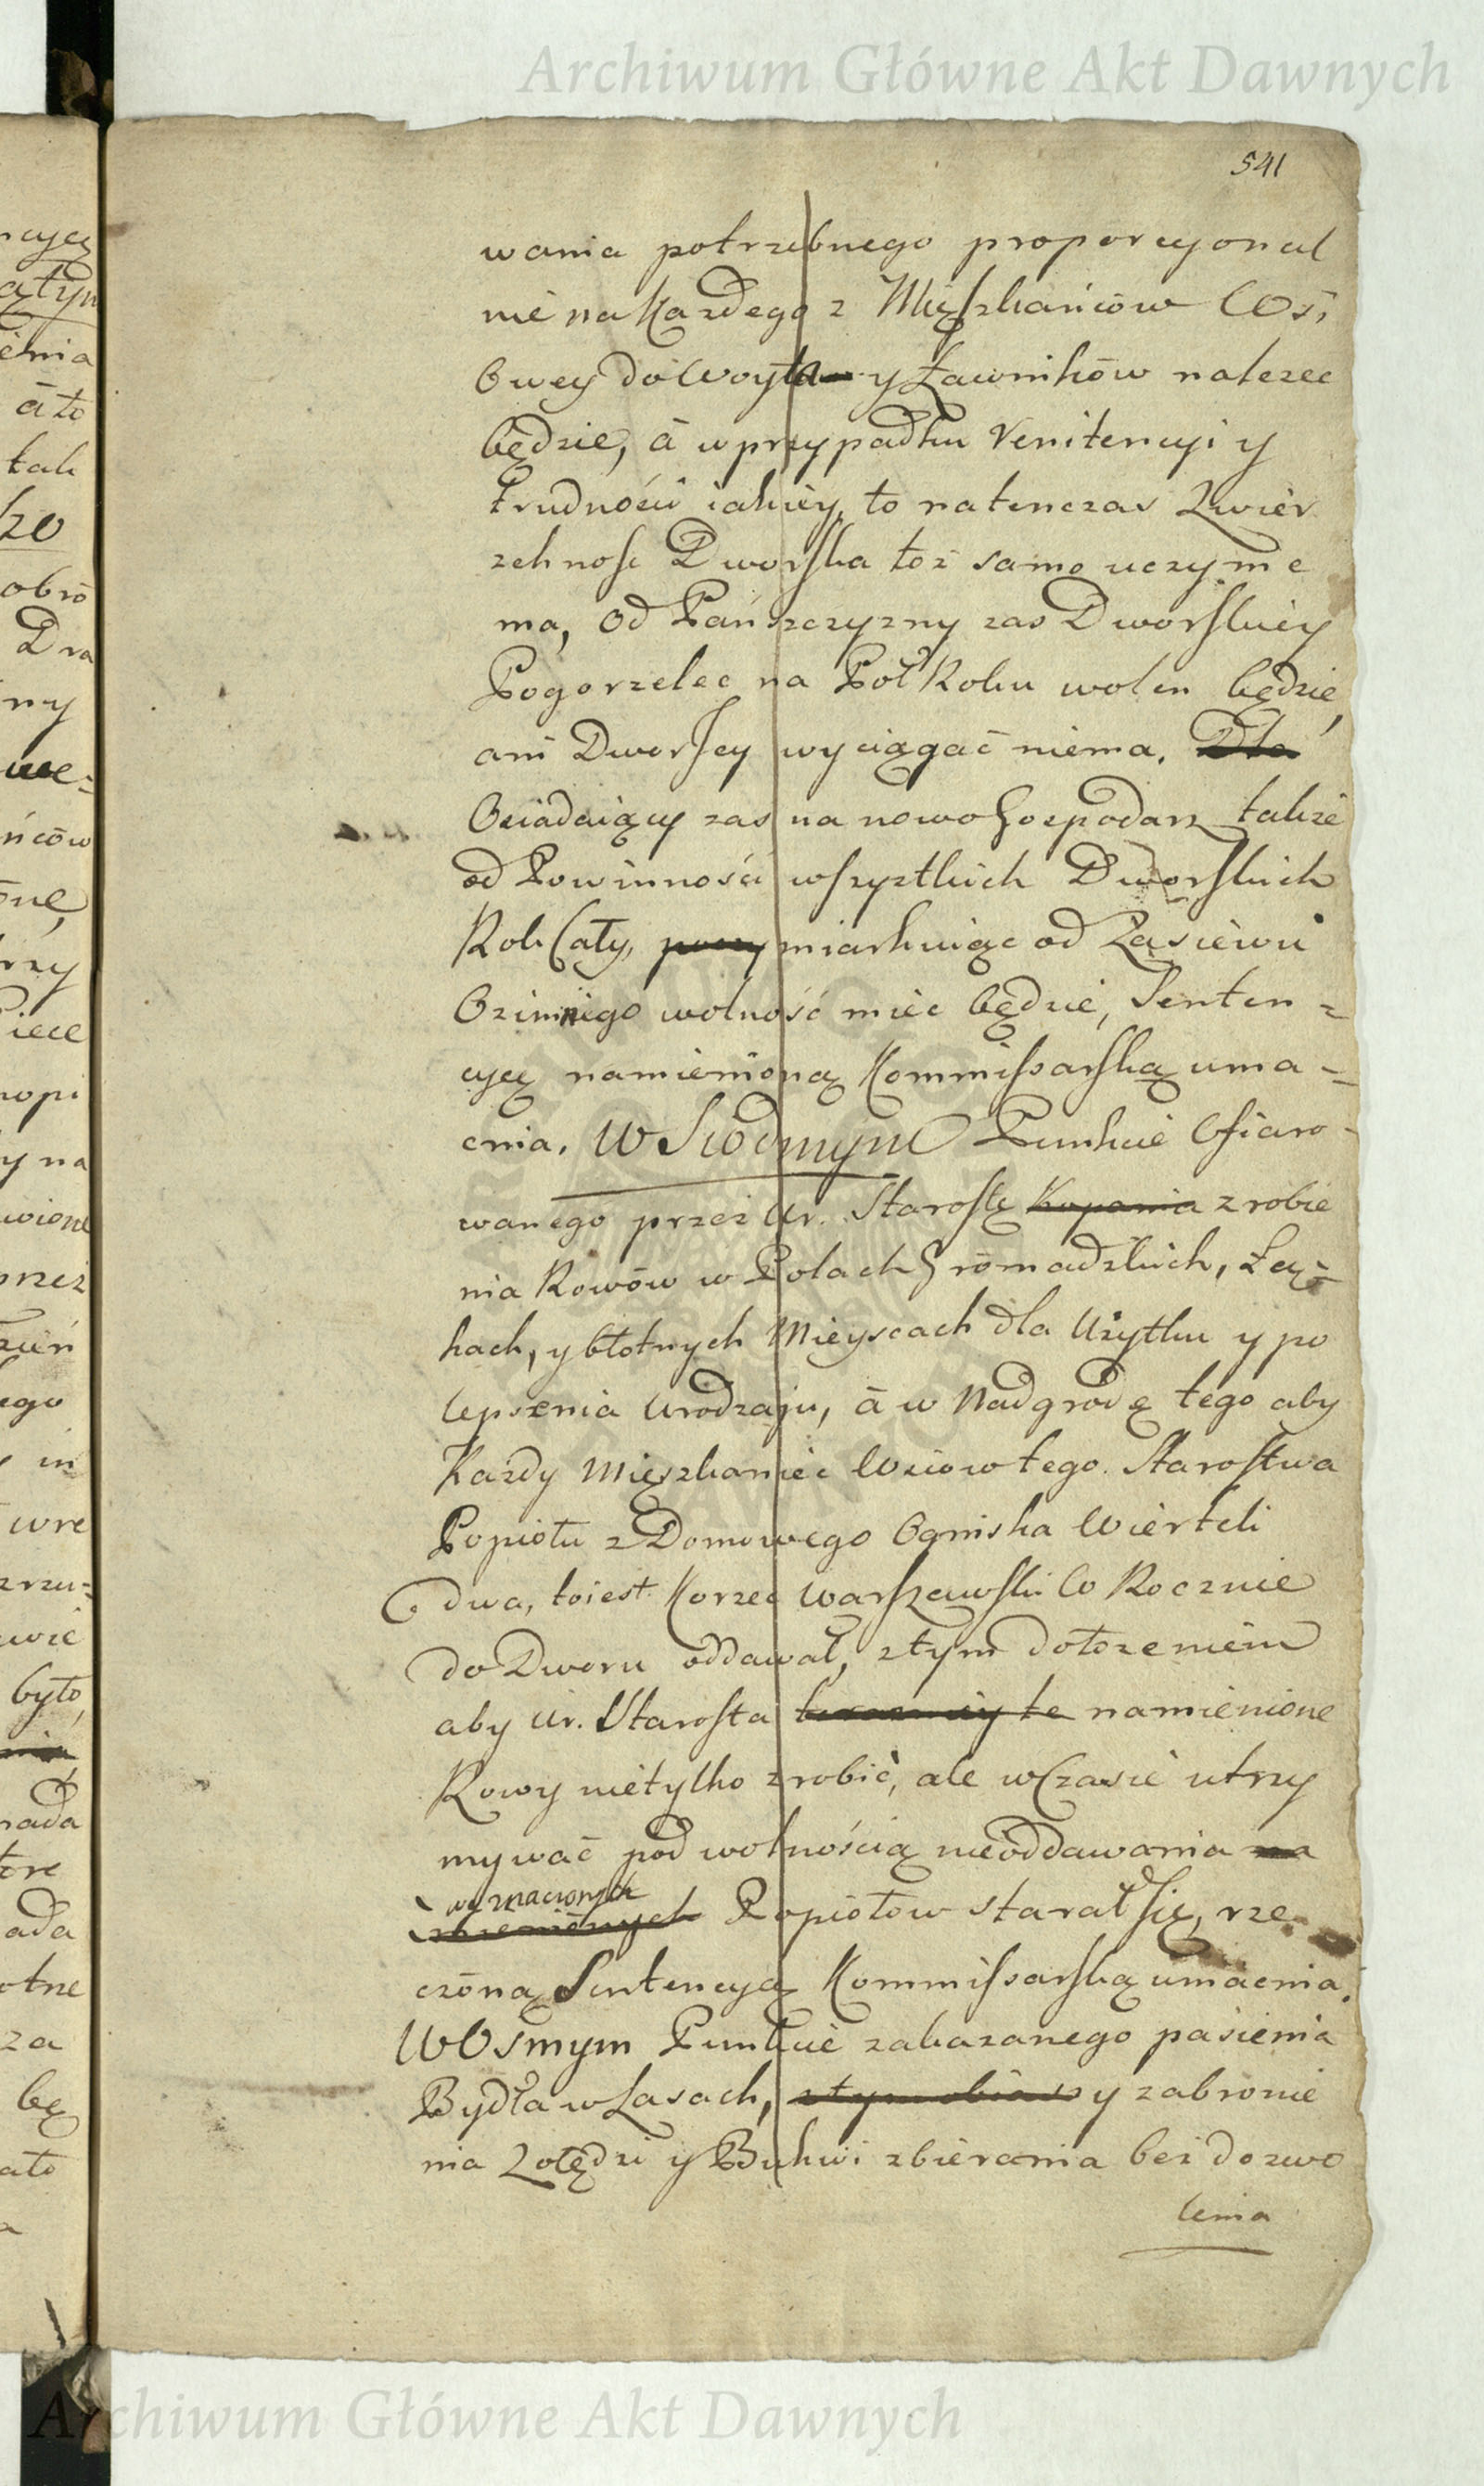 Archiwum Główne Akt Dawnych
541
wania potrzebnego proporcyonal
nie na Każdego z Mięszkańców Wsi,
Owey do Woyta y Ławników nalezec
będzie, á w przypadku renitencyi y
trudności iakiey, to natenczas Zwier
zchnosc Dworska toż samo uczyni e
ma, od Pańszczyzny zas Dworskiey
Pogorzelec na Poł Roku wolen będzie,
ani Dworscy wyciągać niema. Dla
Osiadaiący zas na nowo Gospodarz takze
od Powinnosci wszystkich Dworskich
Rok Cały, miarkuiąc od Zasiewu
Ozimniego wolność miec będzie, Senten=
cyę namienioną Kommissarską uma=
cnia. W Siodmym Punkcie Ofiaro-
wanego przez Ur. Starostę Kopania zrobie
nia Rowów w Polach Gromadzkich, Łąg=
kach, y błotnych Mieyscach dla Użytku y po
lepszenia Urodzaju, á w Nadgrodę tego aby
Każdy Mięszkaniec Wsiow tego Starostwa
Popiołu z Domowego Ogniska Wierteli
dwa, toiest Korzec Warszawski Co Rocznie
do Dworu oddawał, z tym dołozeniem
aby Ur. Starosta namienione
Rowy nietylko zrobić, ale w Czasie utrzy
mywać pod wolnością nieoddawania na
wyznaczonych
Popiołow starał się, rze
czoną Sentencyą Kommissarską umacnia.
W Osmym Punkcie zakazanego pasienia
Bydła w Lasach, y zabronie
nia Zołędzi y Bukwi zbierania bez dozwo
lenia
Archiwum Główne Akt Dawnych